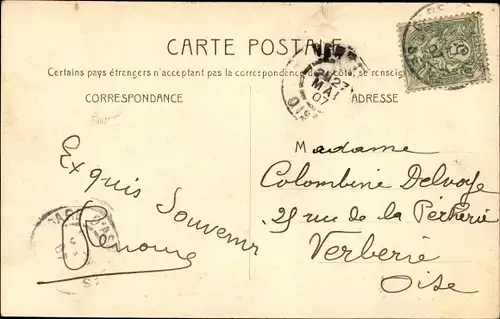 CARTE POSTALE
Certains pays étrangers n'acceptant pas la correspondance de ce côté, se renseigner
CORRESPONDANCE
ADRESSE
27
MAI
07
OISE
Exquis Souvenir
Madame
Colombine Delvoye
25 rue de la Pêcherie
Verberie
Oise